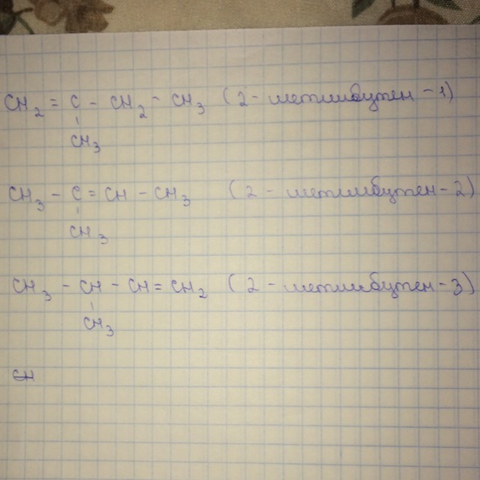 CH₂ = C - CH₂ - CH₃ (2 - метилбутен - 1)
CH₃
CH₃ - C = CH - CH₃ (2 - метилбутен - 2)
CH₃
CH₃ - CH - CH = CH₂ (2 - метилбутен - 3)
CH₃
CH